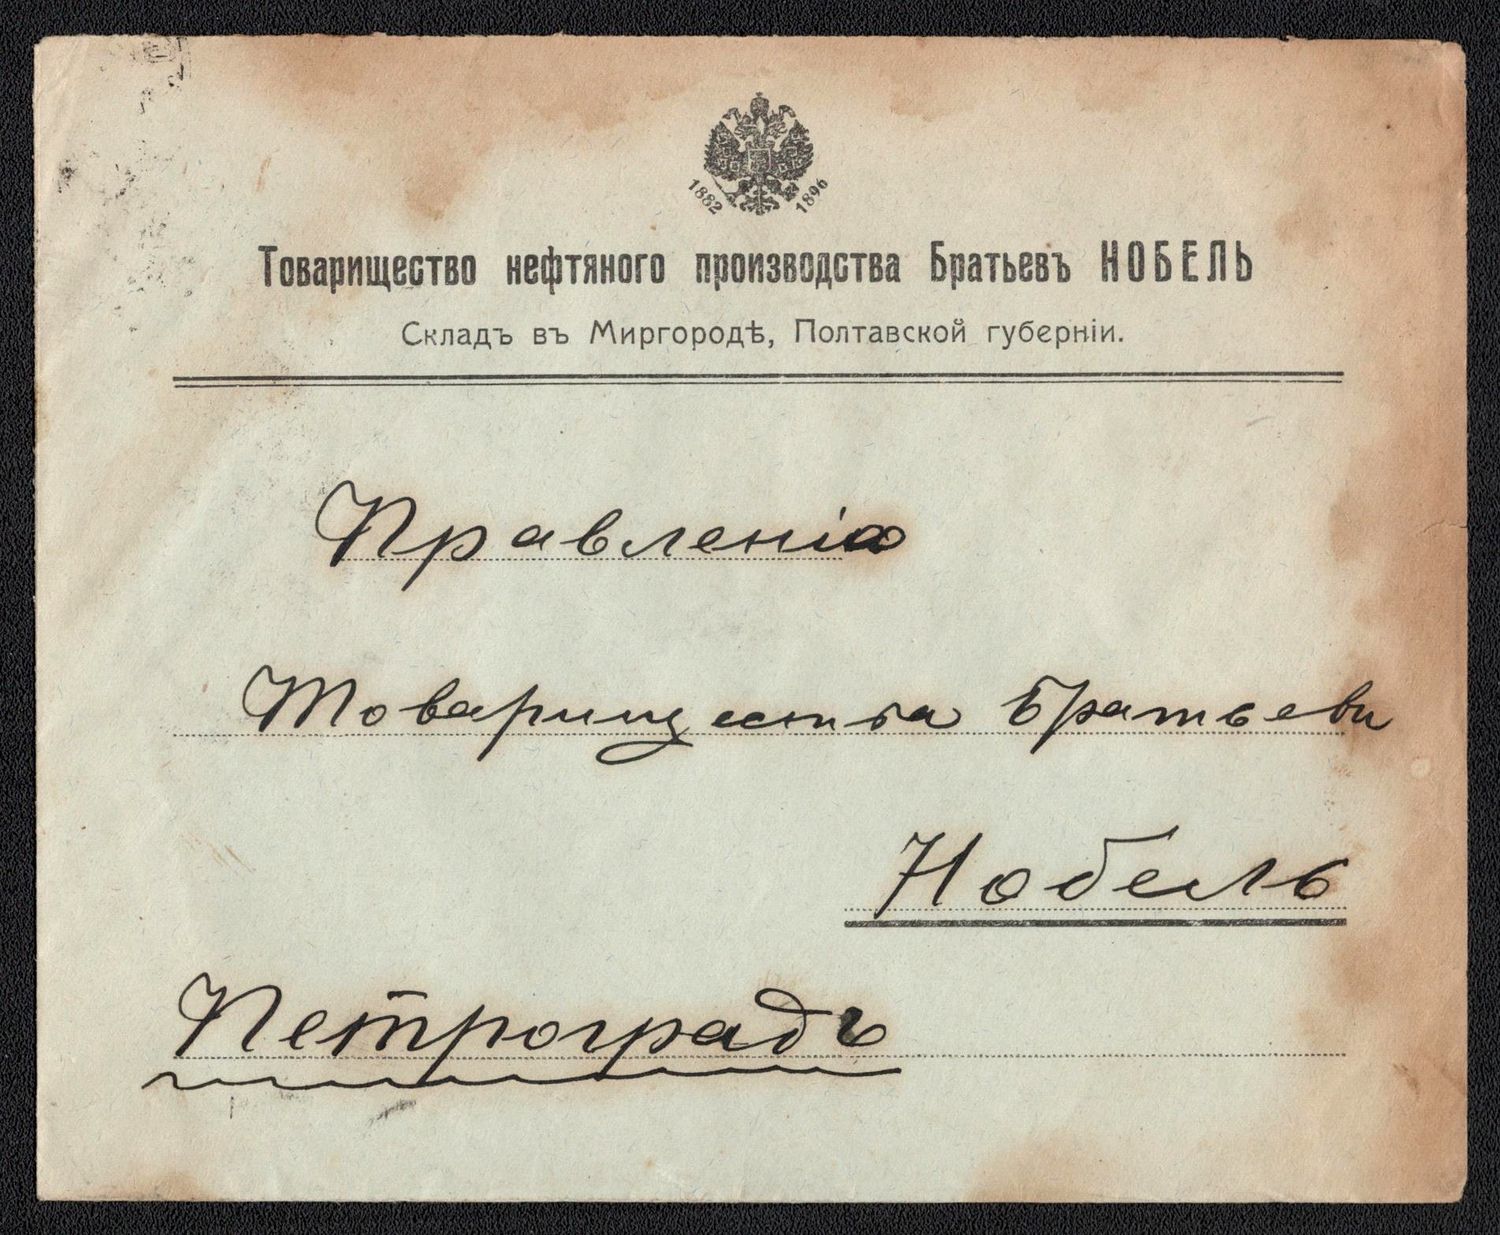 1882 1896
Товарищество нефтяного производства Братьевъ НОБЕЛЬ
Складъ въ Миргородѣ, Полтавской губерніи.
Правленію
Товарищества Братьевъ
Нобель
Петроградъ